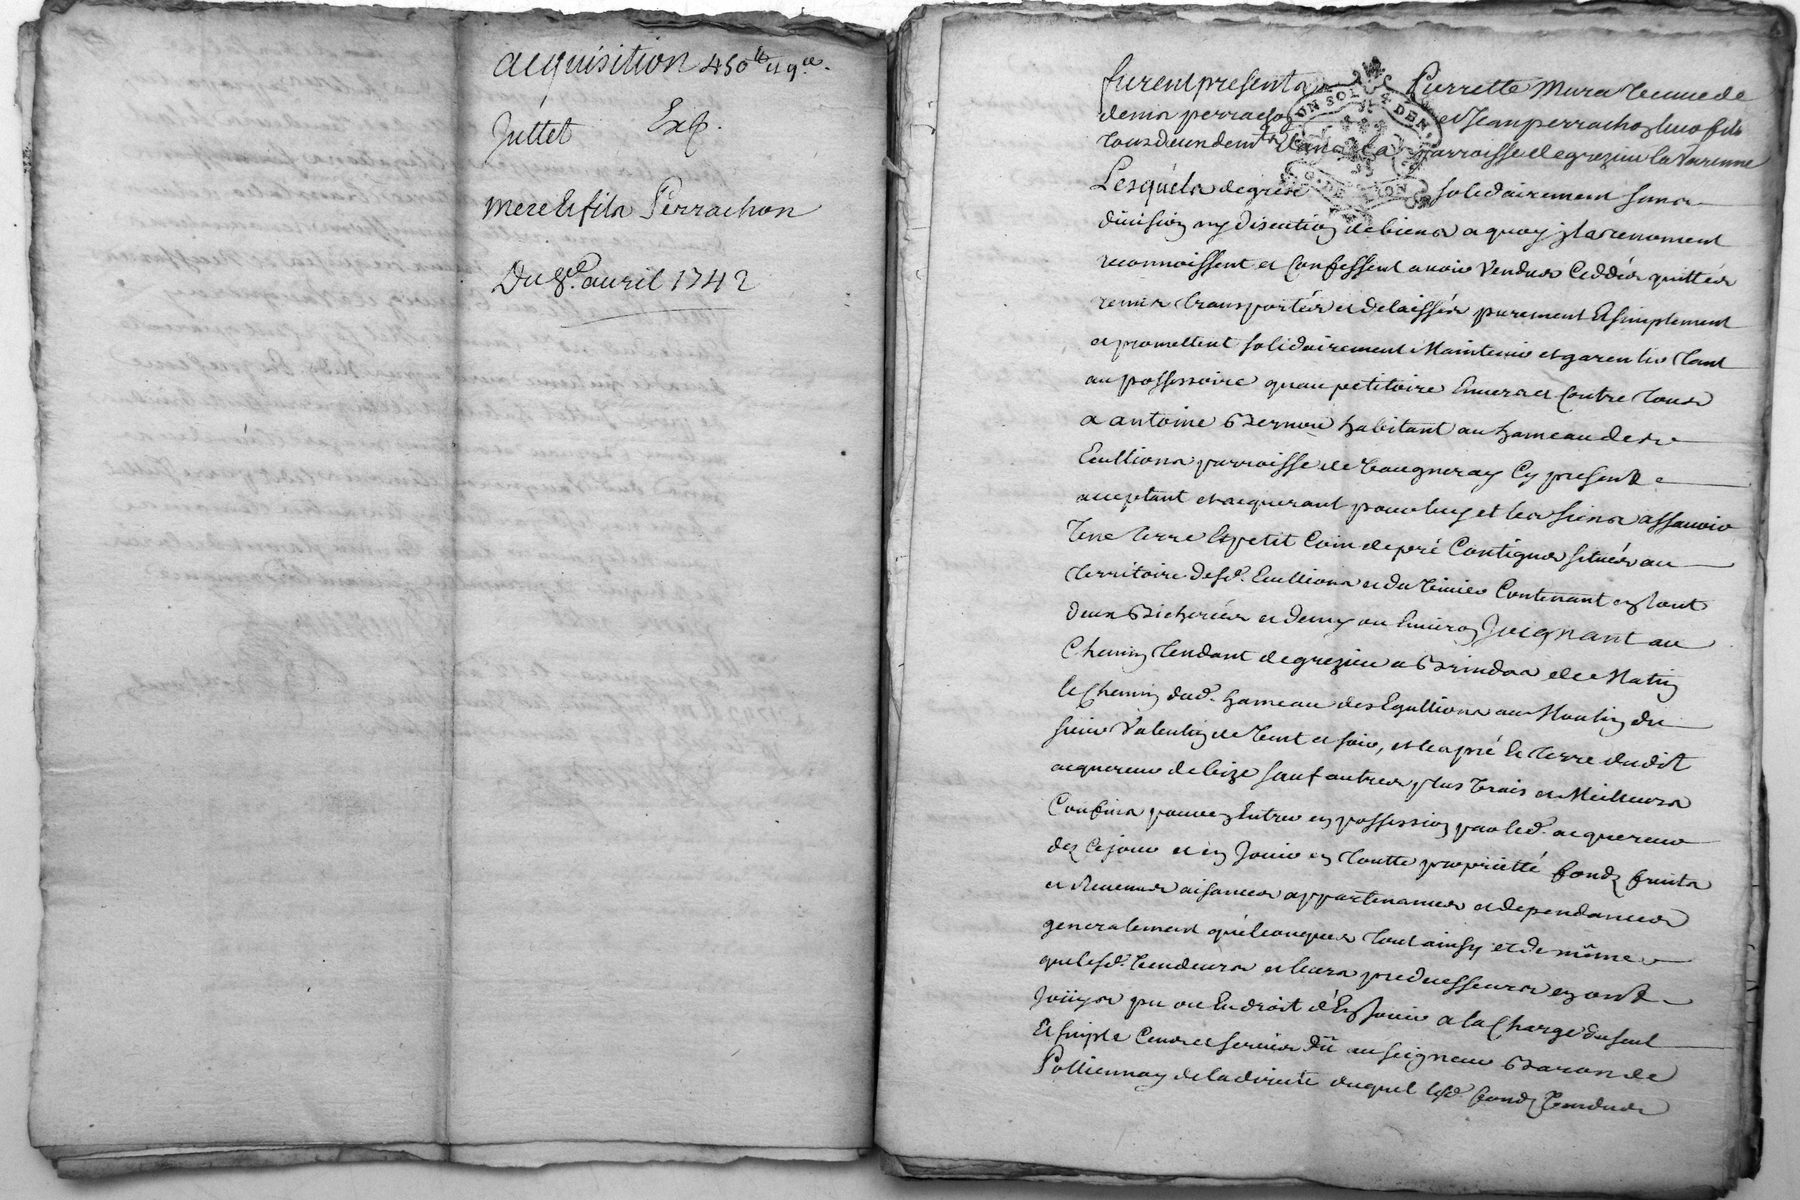 acquisition 450 ll
Juttet Exp.
mere et fils Perrachon
Du 8e. avril 1742
furent presents Pierrette Mura veuve de
denis perrachon et Jean perrachon son fils
tous deux demts dans la parroisse de grezieu la Varenne
Lesquels de gré solidairement sans
division ny discution de biens a quoy ils renoncent
reconnoissent et confessent avoir vendus ceddés quittés
remis transportés et delaissés purement et simplement
et promettent solidairement Maintenir et garentir tant
au possessoire qu'au petitoire Envers et contre tous
a antoine Bernou habitant au hameau des
Eeullions parroisse de Vaugneray Cy present
acceptant et acquerant pour luy et les siens assavoir
Une terre et petit Coin de pré Contigus situés au
territoire desd. Eeullions et du Vivier Contenant en tout
deux Bicherées et demy ou Environ Joignant au
Chemin tendant de grezieu a Brindas de Matin
le Chemin dud. hameau des Egullions au Moulin du
sieur Valentin de Vent et soir, et les pré et terre dudit
acquereur de bize sauf autres plus vrais et Meilleurs
Confins pour en Entrer en possession par led. acquereur
dez ce jour et en Jouir en toutte proprietté fonds fruits
et Revenus aisances appartenances et dependances
generalement quelconques tout ainsy et de même
que lesd. Vendeurs et leurs predecesseurs en ont
Joüys pu ou Eu droit d'En Jouir a la Charge du seul
et simple Cens et servis dû au seigneur Baron de
Pollionnay de la directe duquel lesd. fonds Vendus